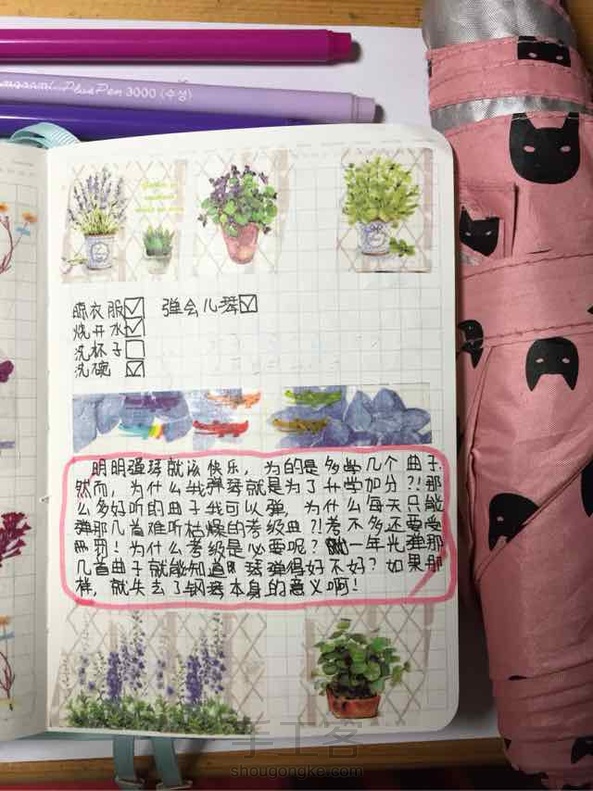 Plus Pen 3000 〈수성〉
晾衣服☑ 弹会儿琴☑
烧开水☑
洗杯子□
洗碗☑
明明弹琴就该快乐，为的是多学几个曲子.
然而，为什么我弹琴就是为了升学加分？！那
么多好听的曲子我可以弹，为什么每天只能
弹那几首难听枯燥的考级曲？！考不多还要受
罚！为什么考级是必要呢？一年光弹那
几首曲子就能知道琴弹得好不好？如果那
样，就失去了钢琴本身的意义啊！
手工客
shougongke.com